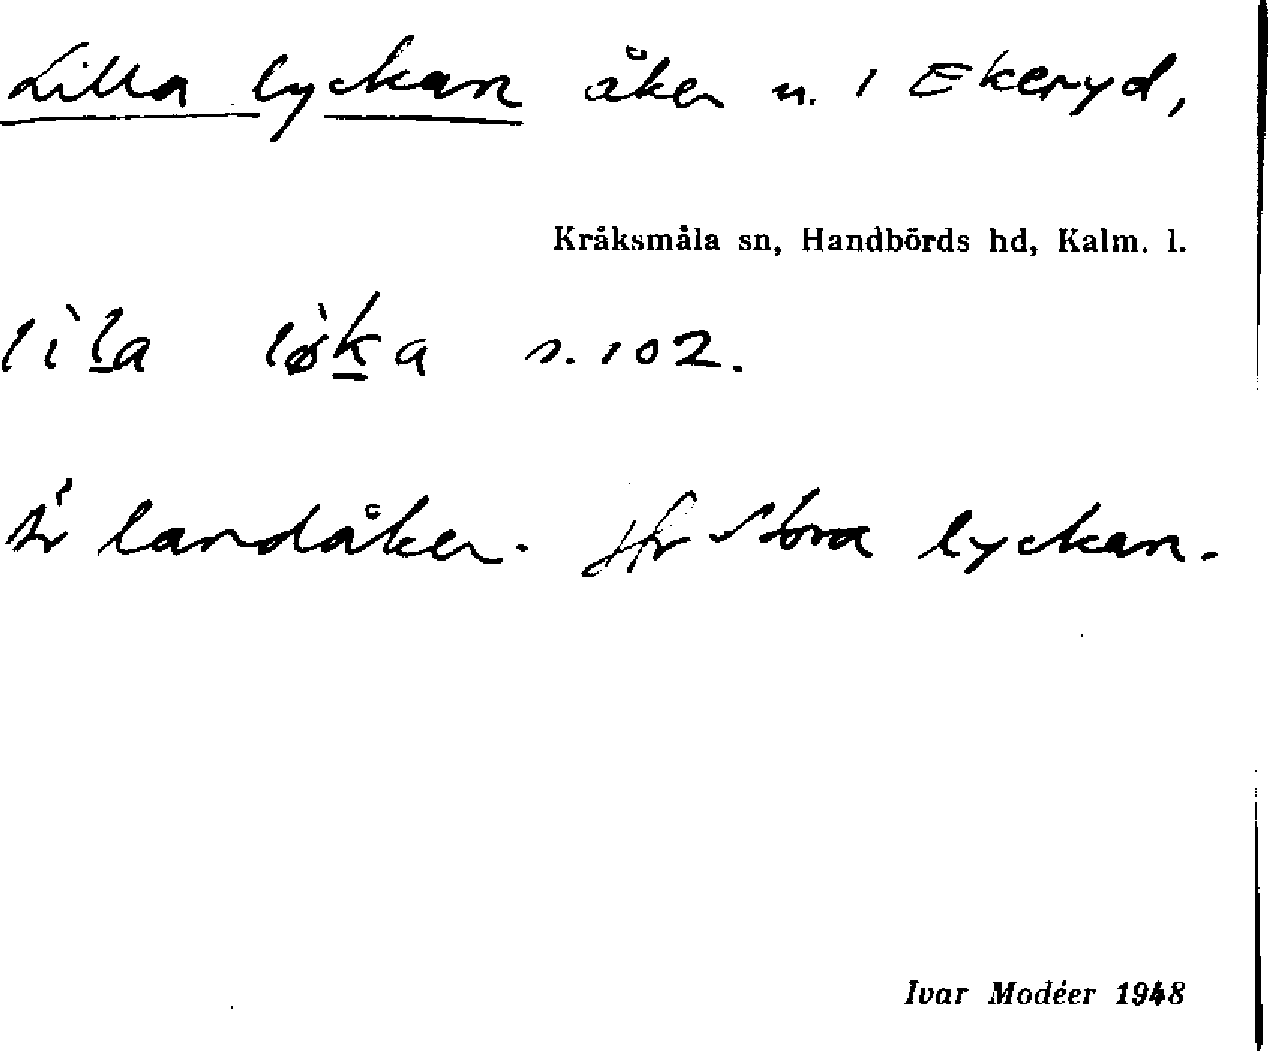 Lilla lyckan åker n. 1 Ekeryd,
Kråksmåla sn, Handbörds hd, Kalm. l.
lìl̲a lø̀k̲a s. 102.
Är landåker. Jfr Stora lyckan.
Ivar Modéer 1948